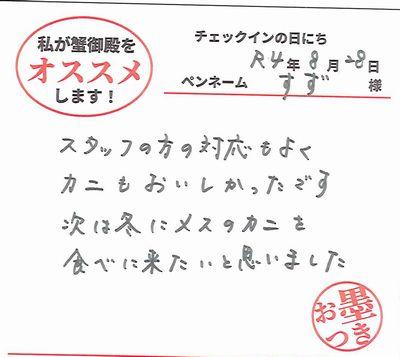 私が蟹御殿を
オススメ
します！
チェックインの日にち
R4年8月28日
ペンネーム すず 様
スタッフの方の対応もよく
カニもおいしかったです
次は冬にメスのカニを
食べに来たいと思いました
お墨つき